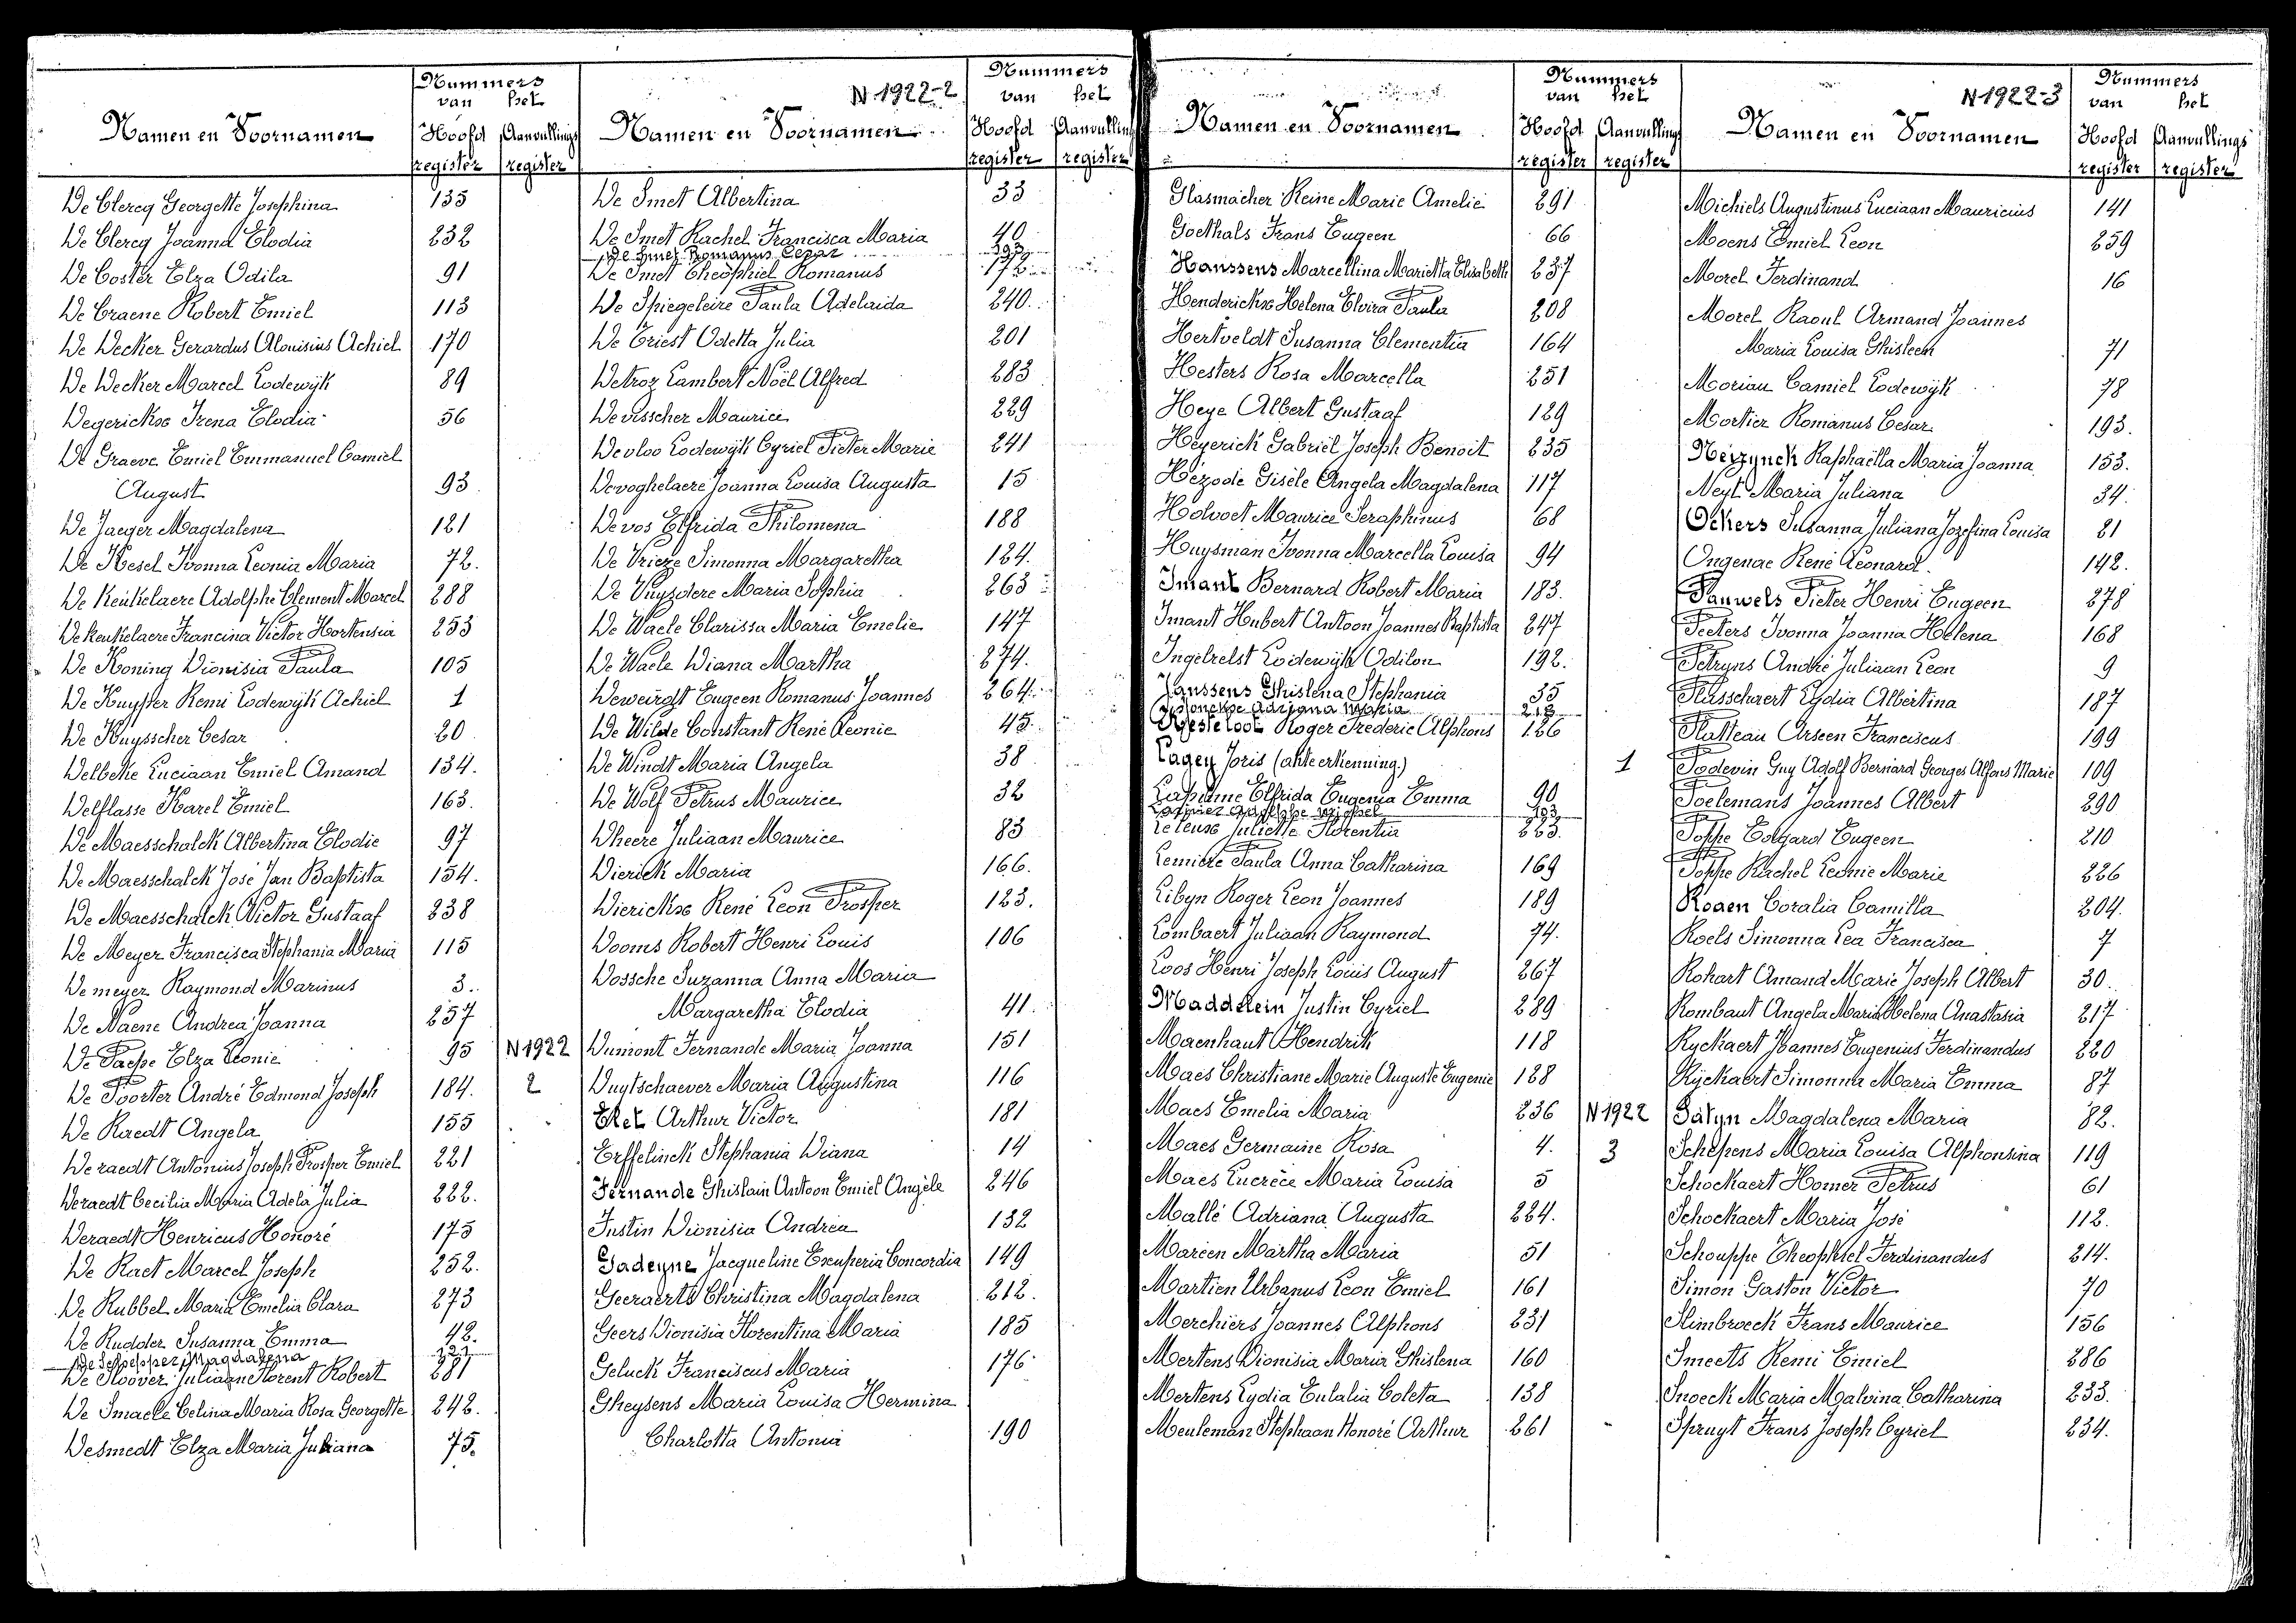 Nummers
van het
Namen en Voornamen Hoofd Aanvullings
register register
De Clercq Georgette Josephina 135
De Clercq Joanna Elodia 232
De Coster Elza Odila 91
De Craene Robert Emiel 113
De Decker Gerardus Aloïsius Achiel 170
De Decker Marcel Lodewijk 89
Degerickse Irena Elodia 56
De Graeve Emiel Emmanuel Camiel
August 93
De Jaeger Magdalena 121
De Kesel Ivonna Leonia Maria 72.
De Keukelaere Adolphe Clement Marcel 288
De Keukelaere Francina Victor Hortensia 253
De Koning Dionisia Paula 105
De Kuyffer Remi Lodewijk Achiel 1
De Kuysscher Cesar 20
Delbeke Luciaan Emiel Amand 134.
Delflasse Karel Emiel 163.
De Maesschalck Albertina Elodie 97
De Maesschalck José Jan Baptista 154.
De Maesschalck Victor Gustaaf 238
De Meyer Francisca Stephania Maria 115
De meyer Raymond Marinus 3.
De Naene Andrea Joanna 257
De Paepe Elza Leonie 95 N1922
De Poorter André Edmond Joseph 184. 2
De Raedt Angela 155
De raedt Antonius Joseph Prosper Emiel 221
Deraedt Cecilia Maria Adela Julia 222.
Deraedt Henricus Honoré 175
De Raet Marcel Joseph 252.
De Rubbel Maria Emelia Clara 273
De Rudder Susanna Emma 42.
De Schepper Magdalena
De Sloover Juliaan Florent Robert 281
De Smaele Celina Maria Rosa Georgette 242.
Desmedt Elza Maria Juliana 75.
N 1922-2
Nummers
van het
Namen en Voornamen Hoofd Aanvullings
register register
De Smet Albertina 33
De Smet Rachel Francisca Maria 40
De Smet Romanus Cesar
De Smet Theophiel Romanus 172
De Spiegeleire Paula Adelaida 240.
De Triest Odetta Julia 201
Detroz Lambert Noël Alfred 283
Devisscher Maurice 229
Devloo Lodewijk Cyriel Pieter Marie 241
Devoghelaere Joanna Louisa Augusta 15
Devos Elfrida Philomena 188
De Vrieze Simonna Margaretha 124.
De Vuyzdere Maria Sophia 263
De Waele Clarissa Maria Emelie 147
De Waele Diana Martha 274.
Deweirdt Eugeen Romanus Joannes 264.
De Wilde Constant René Leonie 45.
De Windt Maria Angela 38
De Wolf Petrus Maurice 32
Dheere Juliaan Maurice 83
Dierick Maria 166.
Dierickse René Leon Prosper 123.
Dooms Robert Henri Louis 106
Dossche Suzanna Anna Maria
Margaretha Elodia 41.
Dumont Fernande Maria Joanna 151
Duytschaever Maria Augustina 116
Ekel Arthur Victor 181
Erffelinck Stephania Diana 14
Fernande Ghislain Antoon Emiel Angèle 246
Fustin Dionisia Andrea 132
Gadeyne Jacqueline Exuperia Concordia 149
Geeraerts Christina Magdalena 212.
Geers Dionisia Florentina Maria 185
Geluck Franciscus Maria 176
Gheysens Maria Louisa Hermina
Charlotta Antonia 190
Nummers
van het
Namen en Voornamen Hoofd Aanvullings
register register
Glasmacher Reine Marie Amelie 291
Goethals Frans Eugeen 66
Hanssens Marcellina Marietta Elisabeth 237
Henderickse Helena Elvira Paula 208
Hertveldt Susanna Clementia 164
Hesters Rosa Marcella 251
Heye Albert Gustaaf 129
Heyerick Gabriël Joseph Benoit 235
Hézode Gisèle Angela Magdalena 117
Holvoet Maurice Seraphinus 68
Huysman Ivonna Marcella Louisa 94
Imant Bernard Robert Maria 183.
Imant Hubert Antoon Joannes Baptista 247
Ingelrelst Lodewijk Odilon 192.
Janssens Ghislena Stephania 35
Adriana Maria 218
Roger Frederic Alphons 126
Lagey Joris (akte erkenning) 1
Laprime Elfrida Eugenia Emma 90
Leleuse Juliette Florentia 223.
Lemière Paula Anna Catharina 169
Libyn Roger Leon Joannes 189
Lombaert Juliaan Raymond 74.
Loos Henri Joseph Louis August 267
Maddelein Justin Cyriel 289
Maenhaut Hendrik 118
Maes Christiane Marie Auguste Eugenie 128
Maes Emelia Maria 236 N1922
Maes Germaine Rosa 4. 3
Maes Lucrèce Maria Louisa 5
Mallé Adriana Augusta 224.
Mareen Martha Maria 51
Martien Urbanus Leon Emiel 161
Merchiers Joannes Alphons 231
Mertens Dionisia Maria Ghislena 160
Mertens Lydia Eulalia Coleta 138
Meuleman Stephaan Honoré Arthur 261
N 1922-3
Nummers
van het
Namen en Voornamen Hoofd Aanvullings
register register
Michiels Augustinus Luciaan Mauricius 141
Moens Emiel Leon 259
Morel Ferdinand 16
Morel Raoul Armand Joannes
Maria Louisa Ghisleen 71
Moriau Camiel Lodewijk 78
Mortier Romanus Cesar 193.
Neizynck Raphaëlla Maria Joanna 153.
Neyt Maria Juliana 34.
Ockers Susanna Juliana Jozefina Louisa 21
Ongenae René Leonard 142.
Pauwels Pieter Henri Eugeen 278
Peeters Ivonna Joanna Helena 168
Petryns André Juliaan Leon 9
Plasschaert Lydia Albertina 187
Platteau Arseen Franciscus 199
Podevin Guy Adolf Bernard Georges Alfons Marie 109
Poelemans Joannes Albert 290
Poppe Edgard Eugeen 210
Poppe Rachel Leonie Marie 226
Roaen Coralia Camilla 204.
Roels Simonna Lea Francisca 7
Rohart Amand Marie Joseph Albert 30.
Rombaut Angela Maria Helena Anastasia 217
Ryckaert Joannes Eugenius Ferdinandus 220
Ryckaert Simonna Maria Emma 87
Satyn Magdalena Maria 82.
Schepens Maria Louisa Alphonsina 119
Schockaert Homer Petrus 61
Schockaert Maria José 112.
Schouppe Theophiel Ferdinandus 214.
Simon Gaston Victor 70
Slimbroeck Frans Maurice 156
Smeets Remi Emiel 286
Snoeck Maria Malvina Catharina 233.
Spruyt Frans Joseph Cyriel 234.